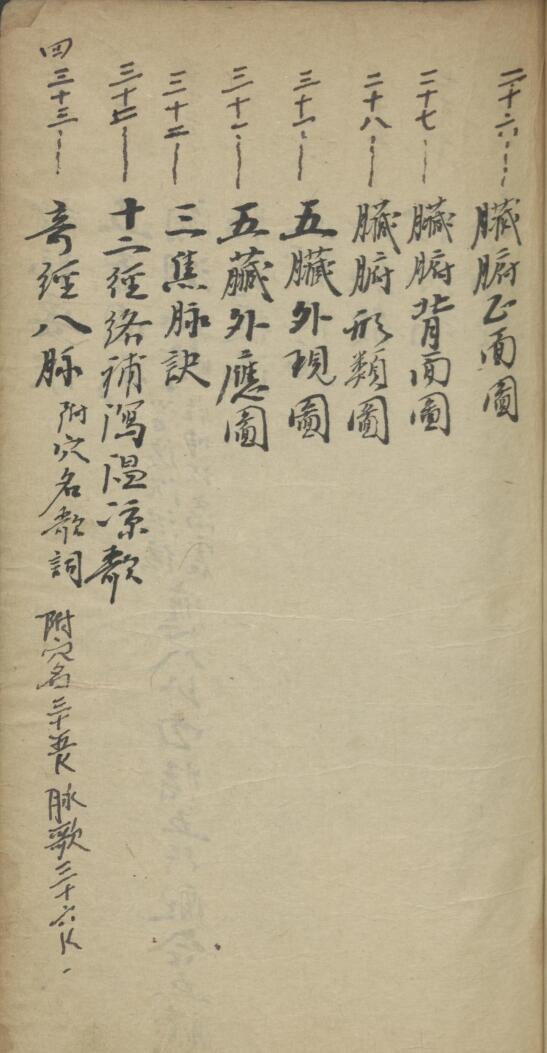 二十六 臟腑正面圖
二十七 臟腑背面圖
二十八 臟腑形類圖
三十一 五臟外現圖
三十一 五臟外應圖
三十二 三焦脉訣
三十七 十二經络補瀉温凉歌
四三十三 奇經八脉 附穴名歌詞 附穴名三十五 脉歌三十六